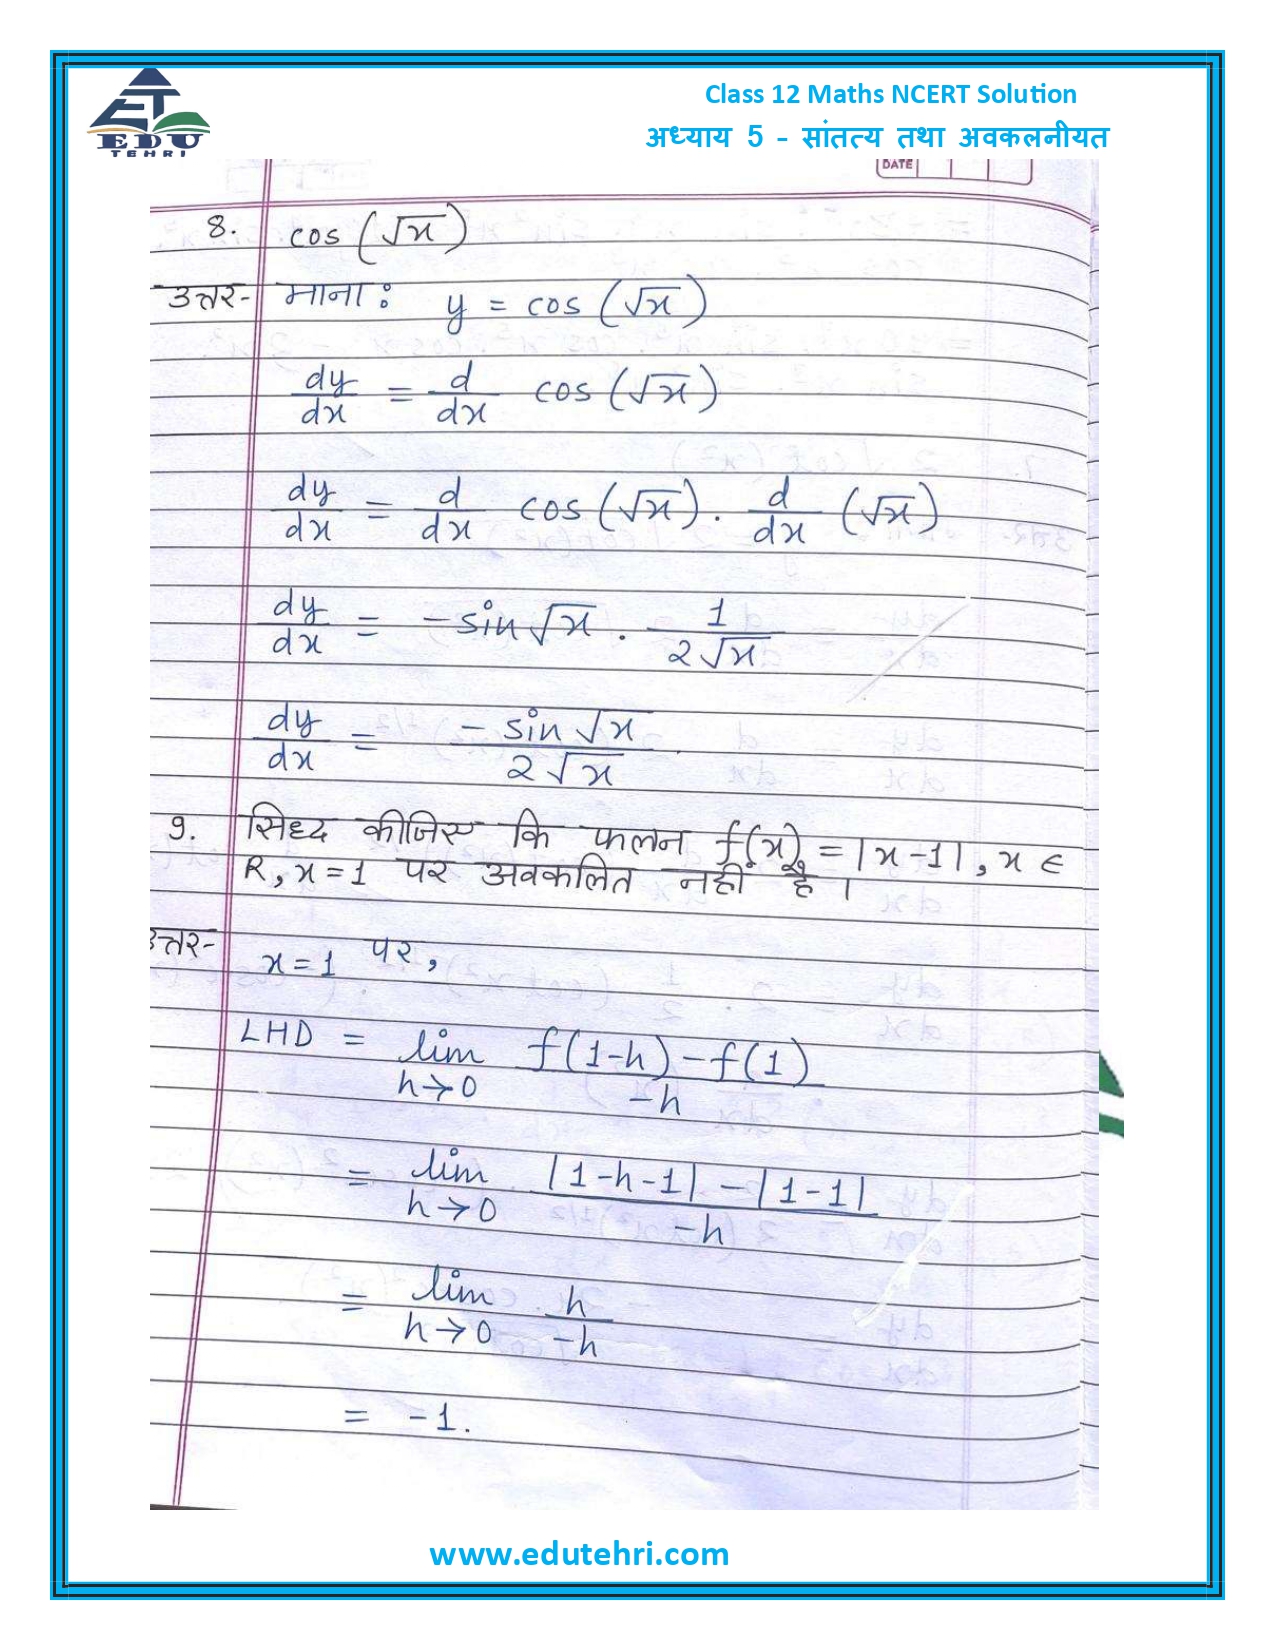 EDU
TEHRI
Class 12 Maths NCERT Solution
अध्याय 5 - सांतत्य तथा अवकलनीयत
DATE
8. cos (√x)
उत्तर- माना: y = cos (√x)
dy/dx = d/dx cos (√x)
dy/dx = d/dx cos (√x) . d/dx (√x)
dy/dx = -sin√x . 1/2√x
dy/dx = -sin√x/2√x .
9. सिध्द कीजिए कि फलन f(x) = |x-1|, x ∈
R, x=1 पर अवकलित नहीं है ।
उत्तर- x=1 पर,
LHD = lim h→0 f(1-h)-f(1)/-h
= lim h→0 |1-h-1|-|1-1|/-h
= lim h→0 h/-h
= -1.
www.edutehri.com